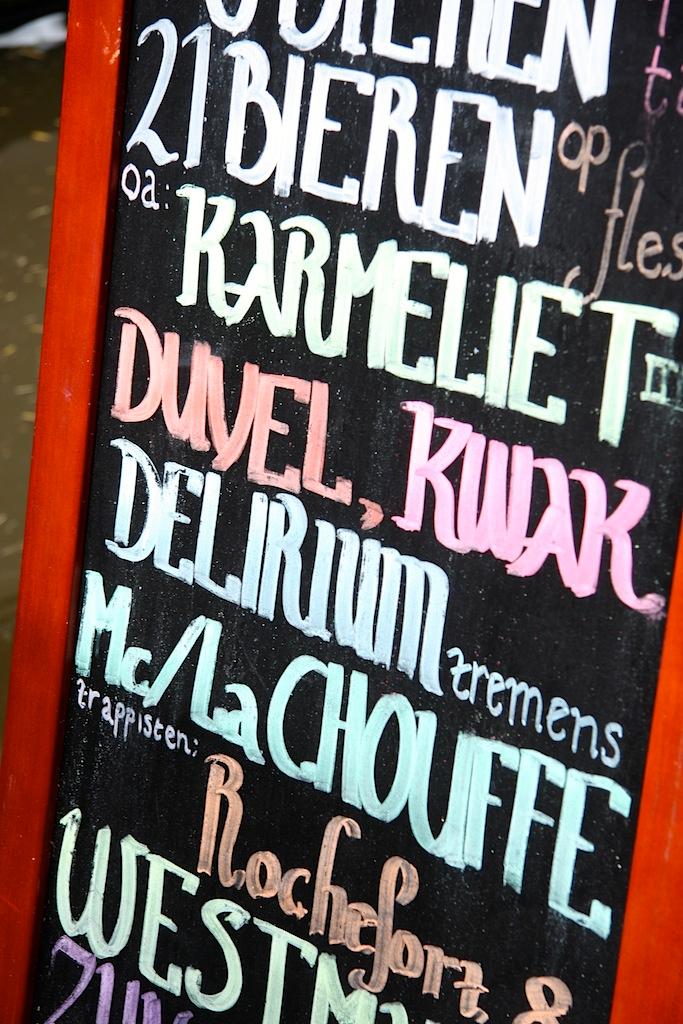 BIEREN
21 BIEREN op fles
oa:
KARMELIET
DUVEL, KWAK
DELIRIUM tremens
Mc/La CHOUFFE
trappisten:
Rochefort, 8